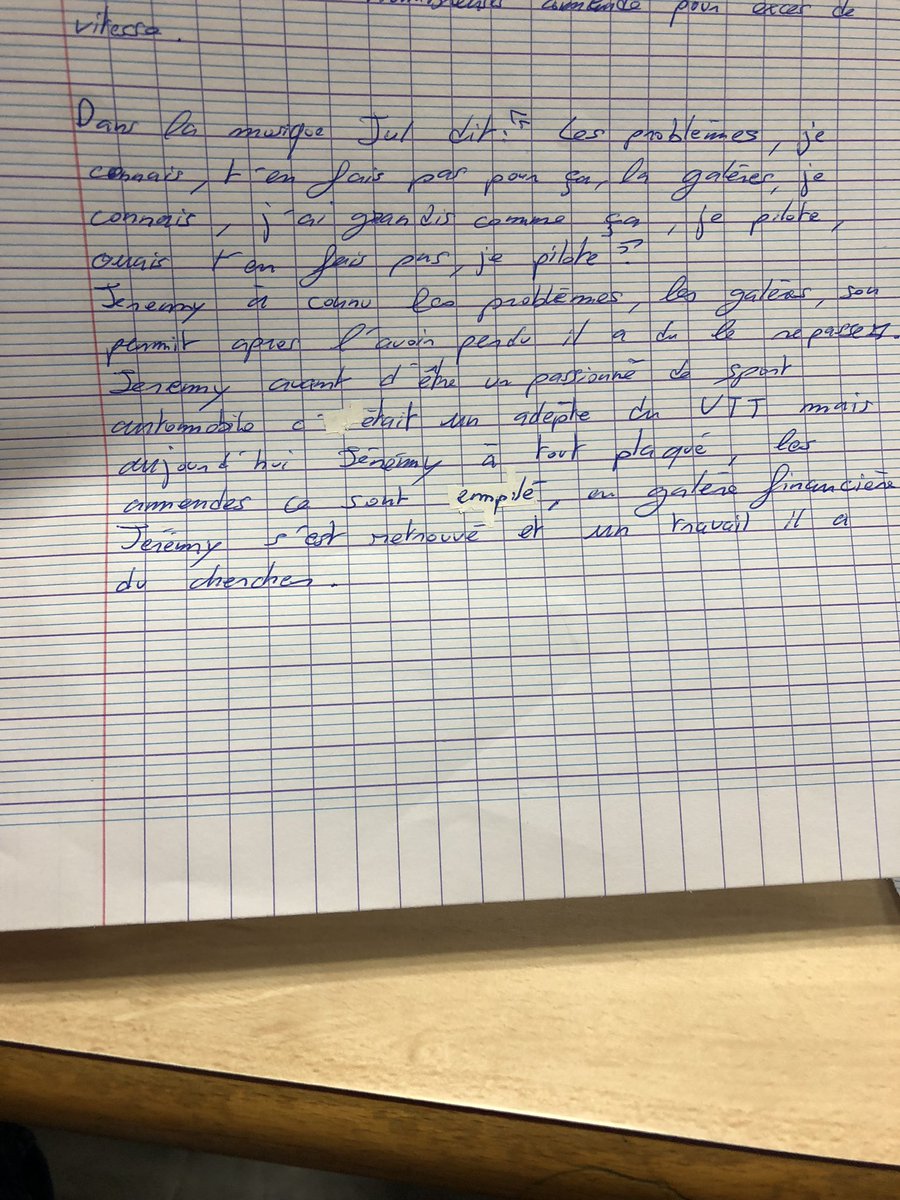 amende pour excès de
vitesse.
Dans la musique Jul dit : " Les problèmes, je
connais, t'en fais pas pour ça, la galères, je
connais, j'ai grandis comme ça, je pilote,
ouais t'en fais pas, je pilote "
Jérémy à connu les problèmes, les galères, son
permit apres l'avoir perdu il a du le repasser.
Jérémy avant d'être un passionné de sport
automobile c'était un adepte du VTT mais
aujourd'hui Jérémy à tout plaqué, les
amendes ce sont empilé, en galère financière
Jérémy s'est retrouvé et un travail il a
du chercher.